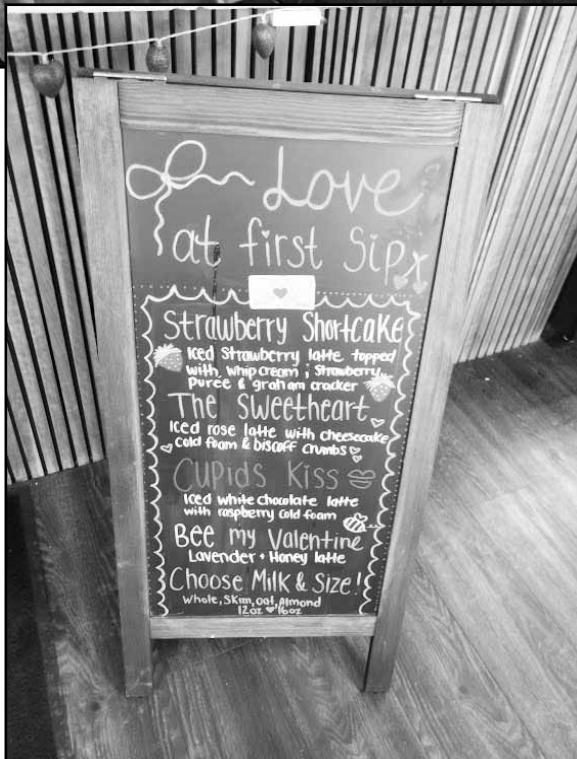 Love
at first Sip
Strawberry Shortcake
Iced Strawberry latte topped
with whip cream, Strawberry
Puree & graham cracker
The Sweetheart
Iced rose latte with cheesecake
Cold foam & biscoff crumbs
Cupids Kiss
Iced white chocolate latte
with raspberry cold foam
Bee my Valentine
Lavender + Honey latte
Choose Milk & Size!
Whole, Skim, oat, Almond
12oz 16oz